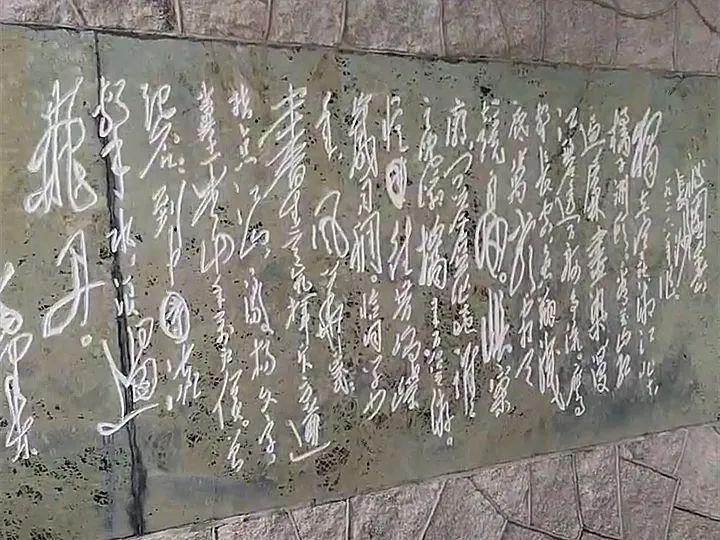 沁园春
长沙
独立寒秋湘江北去
橘子洲头看万山红
遍层林尽染漫
江碧透百舸争流鹰
击长空鱼翔浅
底万类霜天
竞自由。怅寥
廓问苍茫大地谁
主沉浮携来百侣曾游。
忆往昔峥嵘
岁月稠。恰同学少
年风华正茂
书生意气挥斥方遒
指点江山激扬文字
粪土当年万户侯。曾
记否到中流
击水浪遏
飞舟。
毛泽东